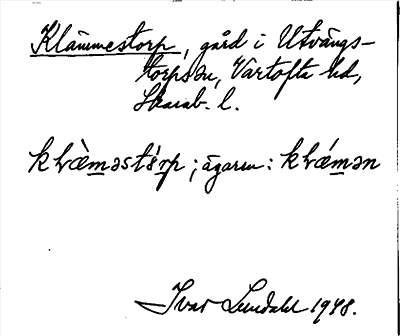 Klämmestorp, gård i Utvängs-
torps sn, Vartofta hd,
Skarab. l.
klæ̀məstɔ́rp; ägaren: klǽmən
Ivar Lundahl 1948.